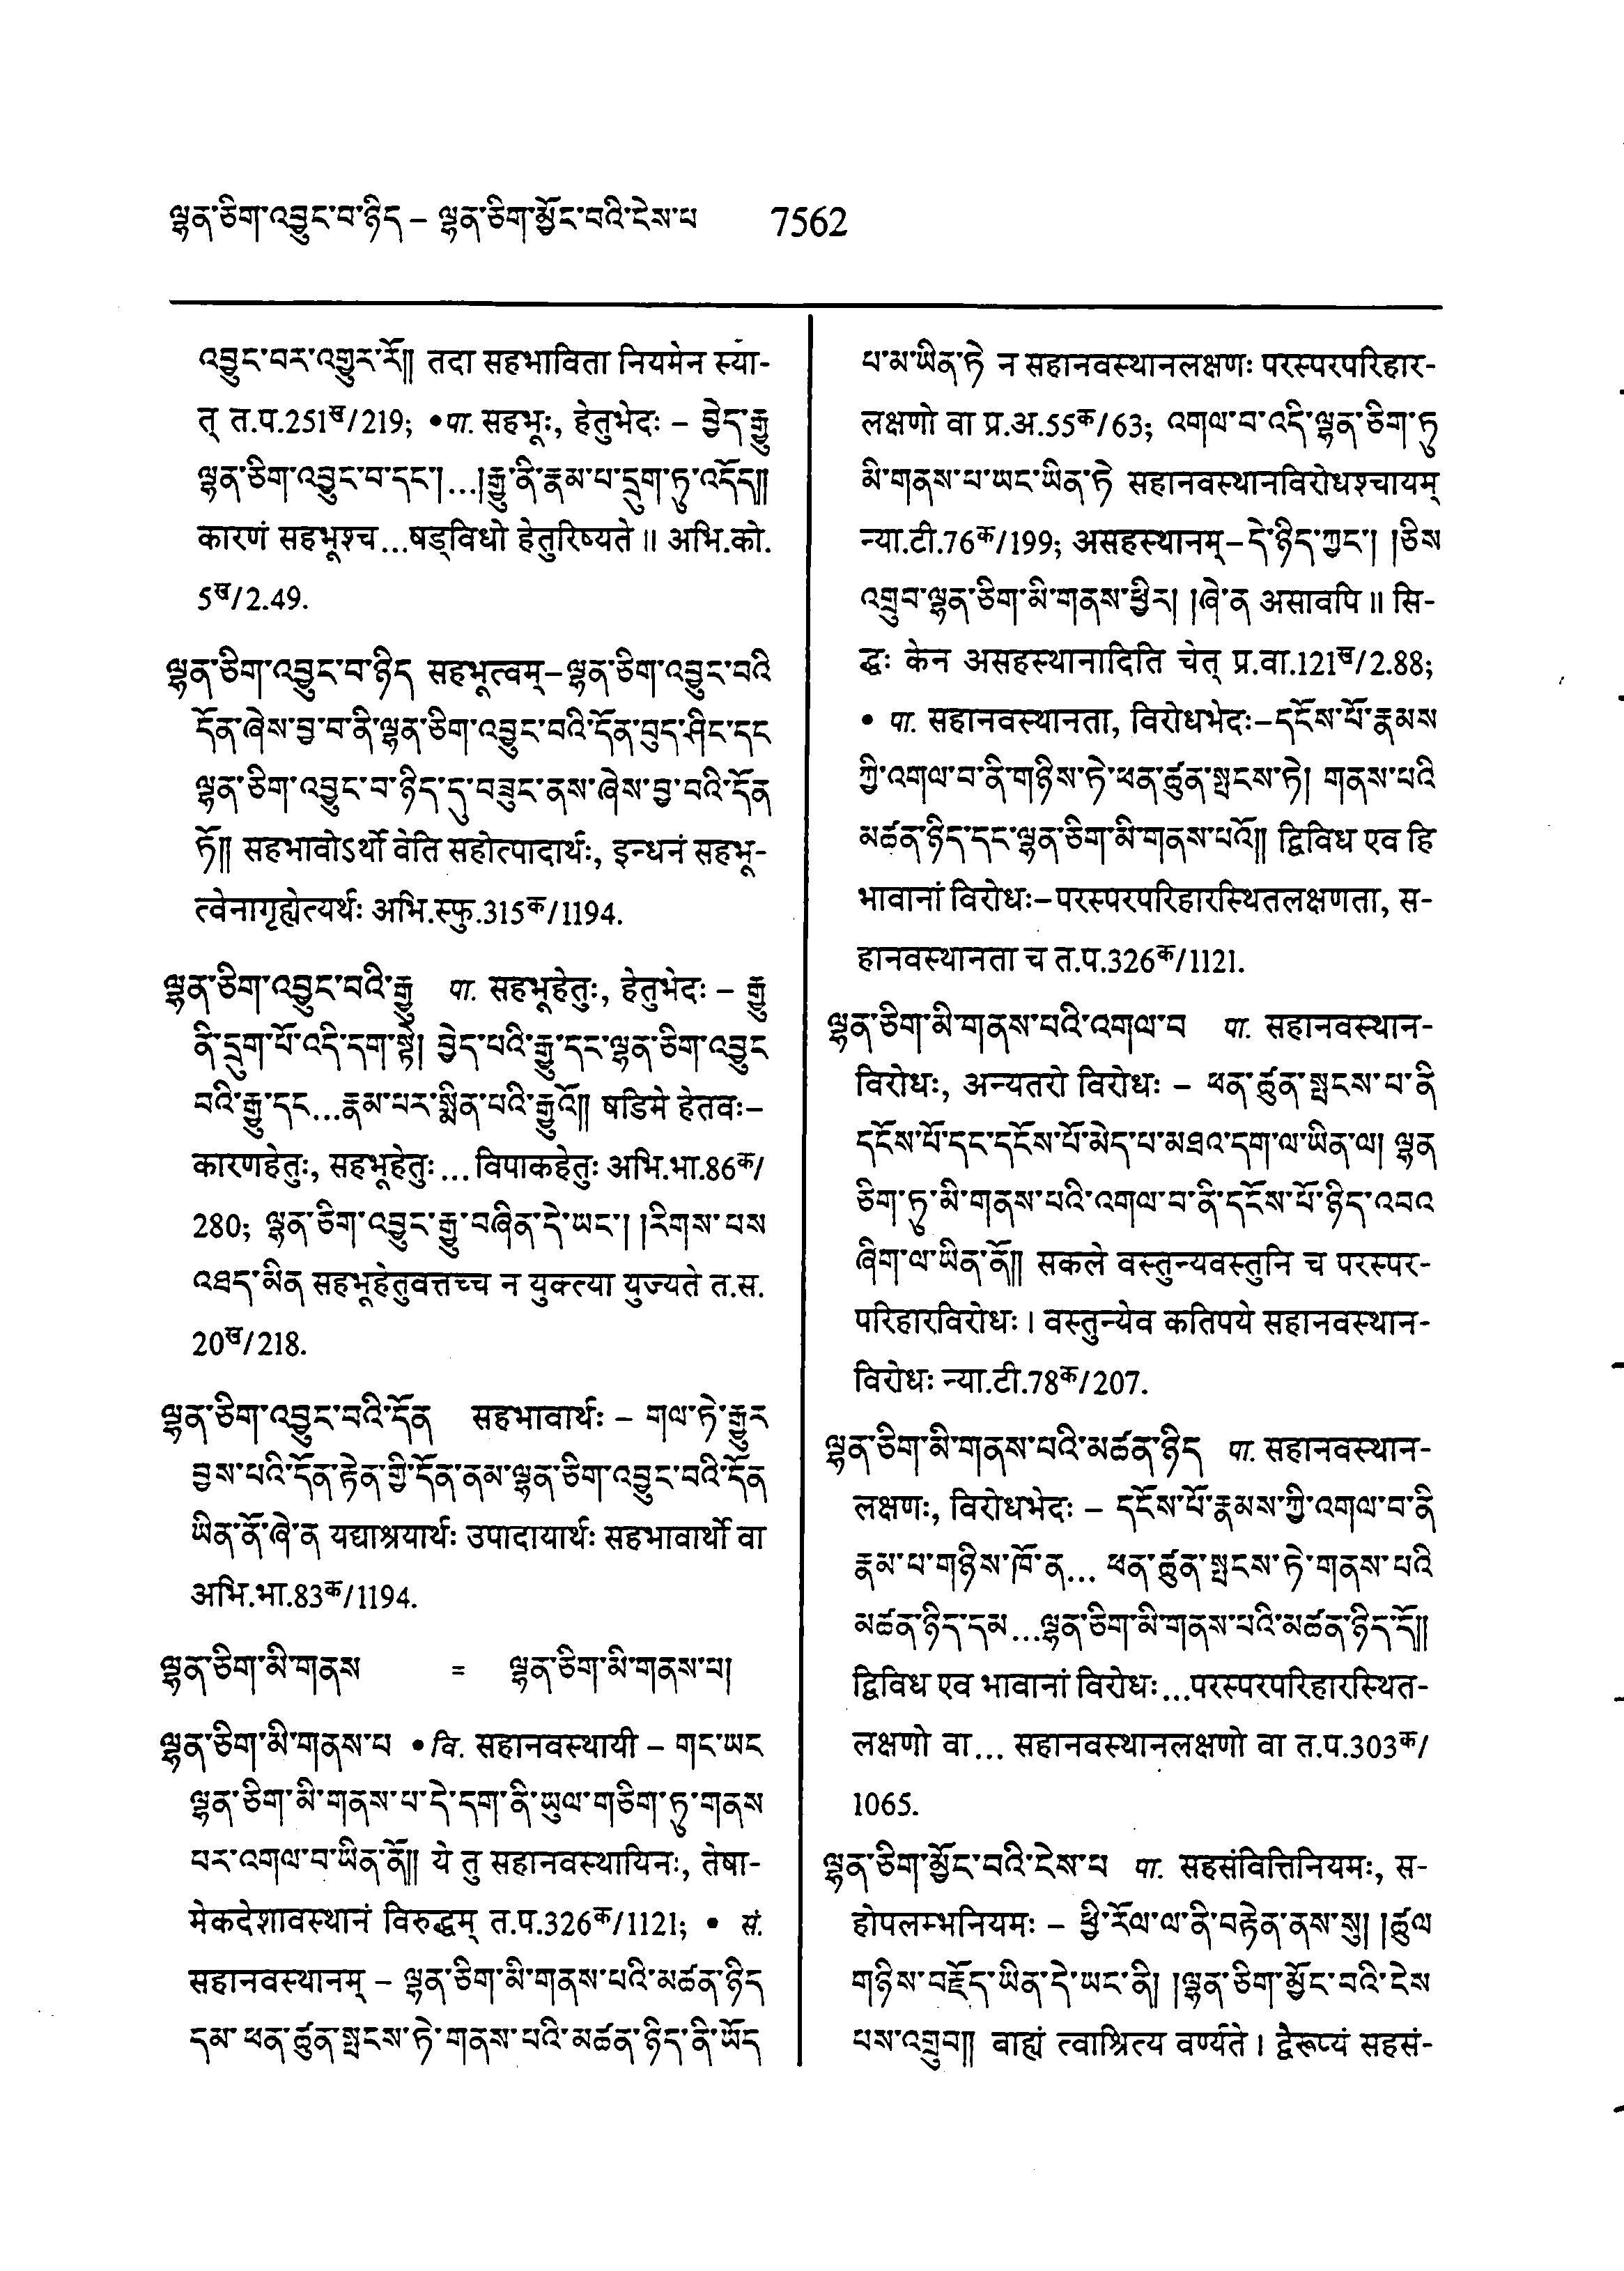 ལྷན་ཅིག་འབྱུང་བ་ཉིད – ལྷན་ཅིག་མྱོང་བའི་ངེས་པ 7562
འབྱུང་བར་འགྱུར་རོ༎ तदा सहभाविता नियमेन स्या-
त् त.प.251ख/219; •पा. सहभूः, हेतुभेदः – བྱེད་རྒྱུ
ལྷན་ཅིག་འབྱུང་བ་དང་།...།རྒྱུ་ནི་རྣམ་པ་དྲུག་ཏུ་འདོད༎
कारणं सहभूश्च...षड्विधो हेतुरिष्यते ॥ अभि.को.
5ख/2.49.
ལྷན་ཅིག་འབྱུང་བ་ཉིད सहभूत्वम्–ལྷན་ཅིག་འབྱུང་བའི
དོན་ཞེས་བྱ་བ་ནི་ལྷན་ཅིག་འབྱུང་བའི་དོན་བུད་ཤིང་དང
ལྷན་ཅིག་འབྱུང་བ་ཉིད་དུ་བཟུང་ནས་ཞེས་བྱ་བའི་དོན
ཏོ༎ सहभावोऽर्थो वेति सहोत्पादार्थः, इन्धनं सहभू-
त्वेनागृह्येत्यर्थः अभि.स्फु.315क/1194.
ལྷན་ཅིག་འབྱུང་བའི་རྒྱུ पा. सहभूहेतुः, हेतुभेदः – རྒྱུ
ནི་དྲུག་པོ་འདི་དག་སྟེ། བྱེད་པའི་རྒྱུ་དང་ལྷན་ཅིག་འབྱུང
བའི་རྒྱུ་དང...རྣམ་པར་སྨིན་པའི་རྒྱུའོ༎ षडिमे हेतवः–
कारणहेतुः, सहभूहेतुः...विपाकहेतुः अभि.भा.86क/
280; ལྷན་ཅིག་འབྱུང་རྒྱུ་བཞིན་དེ་ཡང་། །རིགས་པས
འཐད་མིན सहभूहेतुवत्तच्च न युक्त्या युज्यते त.स.
20ख/218.
ལྷན་ཅིག་འབྱུང་བའི་དོན सहभावार्थः – གལ་ཏེ་རྒྱུར
བྱས་པའི་དོན་རྟེན་གྱི་དོན་ནམ་ལྷན་ཅིག་འབྱུང་བའི་དོན
ཡིན་ནོ་ཞེ་ན यद्याश्रयार्थः उपादायार्थः सहभावार्थो वा
अभि.भा.83क/1194.
ལྷན་ཅིག་མི་གནས = ལྷན་ཅིག་མི་གནས་པ།
ལྷན་ཅིག་མི་གནས་པ •वि. सहानवस्थायी – གང་ཡང
ལྷན་ཅིག་མི་གནས་པ་དེ་དག་ནི་ཡུལ་གཅིག་ཏུ་གནས
པར་འགལ་བ་ཡིན་ནོ༎ ये तु सहानवस्थायिनः, तेषा-
मेकदेशावस्थानं विरुद्धम् त.प.326क/1121; • सं.
सहानवस्थानम् – ལྷན་ཅིག་མི་གནས་པའི་མཚན་ཉིད
དམ་ཕན་ཚུན་སྤངས་ཏེ་གནས་པའི་མཚན་ཉིད་ནི་ཡོད
པ་མ་ཡིན་ཏེ न सहानवस्थानलक्षणः परस्परपरिहार-
लक्षणो वा प्र.अ.55क/63; འགལ་བ་འདི་ལྷན་ཅིག་ཏུ
མི་གནས་པ་ཡང་ཡིན་ཏེ सहानवस्थानविरोधश्चायम्
न्या.टी.76क/199; असहस्थानम्–དེ་ཉིད་ཀྱང་། །ཅིས
འགྲུབ་ལྷན་ཅིག་མི་གནས་ཕྱིར། །ཞེ་ན असावपि ॥ सि-
द्धः केन असहस्थानादिति चेत् प्र.वा.121ख/2.88;
• पा. सहानवस्थानता, विरोधभेदः–དངོས་པོ་རྣམས
ཀྱི་འགལ་བ་ནི་གཉིས་ཏེ་ཕན་ཚུན་སྤངས་ཏེ། གནས་པའི
མཚན་ཉིད་དང་ལྷན་ཅིག་མི་གནས་པའོ༎ द्विविध एव हि
भावानां विरोधः–परस्परपरिहारस्थितलक्षणता, स-
हानवस्थानता च त.प.326क/1121.
ལྷན་ཅིག་མི་གནས་པའི་འགལ་བ पा. सहानवस्थान-
विरोधः, अन्यतरो विरोधः – ཕན་ཚུན་སྤངས་པ་ནི
དངོས་པོ་དང་དངོས་པོ་མེད་པ་མཐའ་དག་ལ་ཡིན་ལ། ལྷན
ཅིག་ཏུ་མི་གནས་པའི་འགལ་བ་ནི་དངོས་པོ་ཉིད་འབའ
ཞིག་ལ་ཡིན་ནོ༎ सकले वस्तुन्यवस्तुनि च परस्पर-
परिहारविरोधः। वस्तुन्येव कतिपये सहानवस्थान-
विरोधः न्या.टी.78क/207.
ལྷན་ཅིག་མི་གནས་པའི་མཚན་ཉིད पा. सहानवस्थान-
लक्षणः, विरोधभेदः – དངོས་པོ་རྣམས་ཀྱི་འགལ་བ་ནི
རྣམ་པ་གཉིས་ཁོ་ན... ཕན་ཚུན་སྤངས་ཏེ་གནས་པའི
མཚན་ཉིད་དམ...ལྷན་ཅིག་མི་གནས་པའི་མཚན་ཉིད་དོ༎
द्विविध एव भावानां विरोधः...परस्परपरिहारस्थित-
लक्षणो वा... सहानवस्थानलक्षणो वा त.प.303क/
1065.
ལྷན་ཅིག་མྱོང་བའི་ངེས་པ पा. सहसंवित्तिनियमः, स-
होपलम्भनियमः – ཕྱི་རོལ་ལ་ནི་བརྟེན་ནས་སུ། །ཚུལ
གཉིས་བརྗོད་ཡིན་དེ་ཡང་ནི། །ལྷན་ཅིག་མྱོང་བའི་ངེས
པས་འགྲུབ༎ बाह्यं त्वाश्रित्य वर्ण्यते। द्वैरूप्यं सहसं-